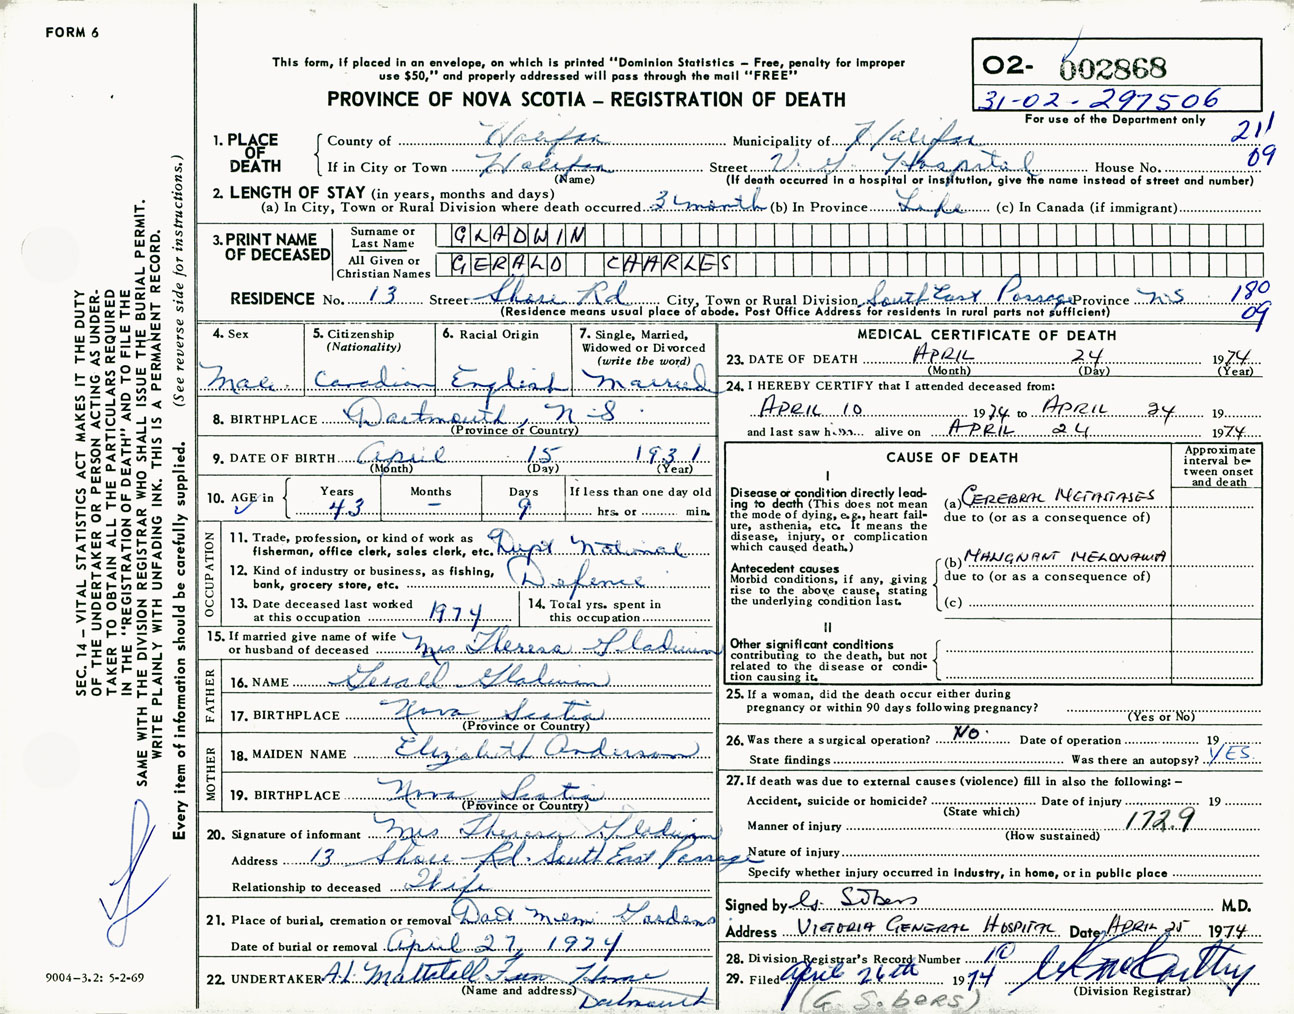 FORM 6
This form, if placed in an envelope, on which is printed "Dominion Statistics – Free, penalty for improper
use $50," and properly addressed will pass through the mail "FREE"
PROVINCE OF NOVA SCOTIA – REGISTRATION OF DEATH
02- 002868
31-02-297506
For use of the Department only
211
09
1. PLACE OF DEATH
County of Halifax Municipality of Halifax
If in City or Town Halifax Street V. G. Hospital House No.
(Name) (If death occurred in a hospital or institution, give the name instead of street and number)
2. LENGTH OF STAY (in years, months and days)
(a) In City, Town or Rural Division where death occurred 3 month (b) In Province Life (c) In Canada (if immigrant)
3. PRINT NAME OF DECEASED
Surname or Last Name GLADWIN
All Given or Christian Names GERALD CHARLES
RESIDENCE No. 13 Street Shore Rd City, Town or Rural Division South East Passage Province N.S
180
09
(Residence means usual place of abode. Post Office Address for residents in rural parts not sufficient)
4. Sex
Male
5. Citizenship
(Nationality)
Canadian
6. Racial Origin
English
7. Single, Married,
Widowed or Divorced
(write the word)
Married
8. BIRTHPLACE Dartmouth, N.S
(Province or Country)
9. DATE OF BIRTH April 15 1931
(Month) (Day) (Year)
10. AGE in
Years Months Days If less than one day old
43 – 9 hrs. or min.
OCCUPATION
11. Trade, profession, or kind of work as
fisherman, office clerk, sales clerk, etc. Dept National
12. Kind of industry or business, as fishing,
bank, grocery store, etc. Defence
13. Date deceased last worked
at this occupation 1974
14. Total yrs. spent in
this occupation
15. If married give name of wife
or husband of deceased Mrs. Theresa Gladwin
FATHER
16. NAME Gerald Gladwin
17. BIRTHPLACE Nova Scotia
(Province or Country)
MOTHER
18. MAIDEN NAME Elizabeth Anderson
19. BIRTHPLACE Nova Scotia
(Province or Country)
20. Signature of informant Mrs. Theresa Gladwin
Address 13 Shore Rd. South East Passage
Relationship to deceased Wife
21. Place of burial, cremation or removal Dart Mem. Gardens
Date of burial or removal April 27, 1974
22. UNDERTAKER A.L. Mattatall Fun Home
(Name and address) Dartmouth
MEDICAL CERTIFICATE OF DEATH
23. DATE OF DEATH APRIL 24 1974
(Month) (Day) (Year)
24. I HEREBY CERTIFY that I attended deceased from:
APRIL 10 1974 to APRIL 24 19
and last saw him alive on APRIL 24 1974
CAUSE OF DEATH
Approximate
interval be-
tween onset
and death
I
Disease or condition directly lead-
ing to death (This does not
mean the mode of dying, e.g., heart fail-
ure, asthenia, etc. It means the
disease, injury, or complication
which caused death.)
(a) CEREBRAL METASTASES
due to (or as a consequence of)
(b) MALIGNANT MELONAMA
due to (or as a consequence of)
(c)
Antecedent causes
Morbid conditions, if any, giving
rise to the above cause, stating
the underlying condition last.
II
Other significant conditions
contributing to the death, but not
related to the disease or condi-
tion causing it.
25. If a woman, did the death occur either during
pregnancy or within 90 days following pregnancy?
(Yes or No)
26. Was there a surgical operation? NO. Date of operation 19
State findings Was there an autopsy? YES
27. If death was due to external causes (violence) fill in also the following:–
Accident, suicide or homicide? Date of injury 19
(State which)
Manner of injury 172.9
(How sustained)
Nature of injury
Specify whether injury occurred in industry, in home, or in public place
Signed by G. Sobers M.D.
Address VICTORIA GENERAL HOSPITAL Date APRIL 25 1974
28. Division Registrar's Record Number 10
29. Filed April 26th 1974
(Division Registrar)
(G. Sobers)
SEC. 14 – VITAL STATISTICS ACT MAKES IT THE DUTY
OF THE UNDERTAKER OR PERSON ACTING AS UNDER-
TAKER TO OBTAIN ALL THE PARTICULARS REQUIRED
IN THE "REGISTRATION OF DEATH" AND TO FILE THE
SAME WITH THE DIVISION REGISTRAR WHO SHALL ISSUE THE BURIAL PERMIT.
WRITE PLAINLY WITH UNFADING INK. THIS IS A PERMANENT RECORD.
Every item of information should be carefully supplied. (See reverse side for instructions.)
9004-3.2: 5-2-69